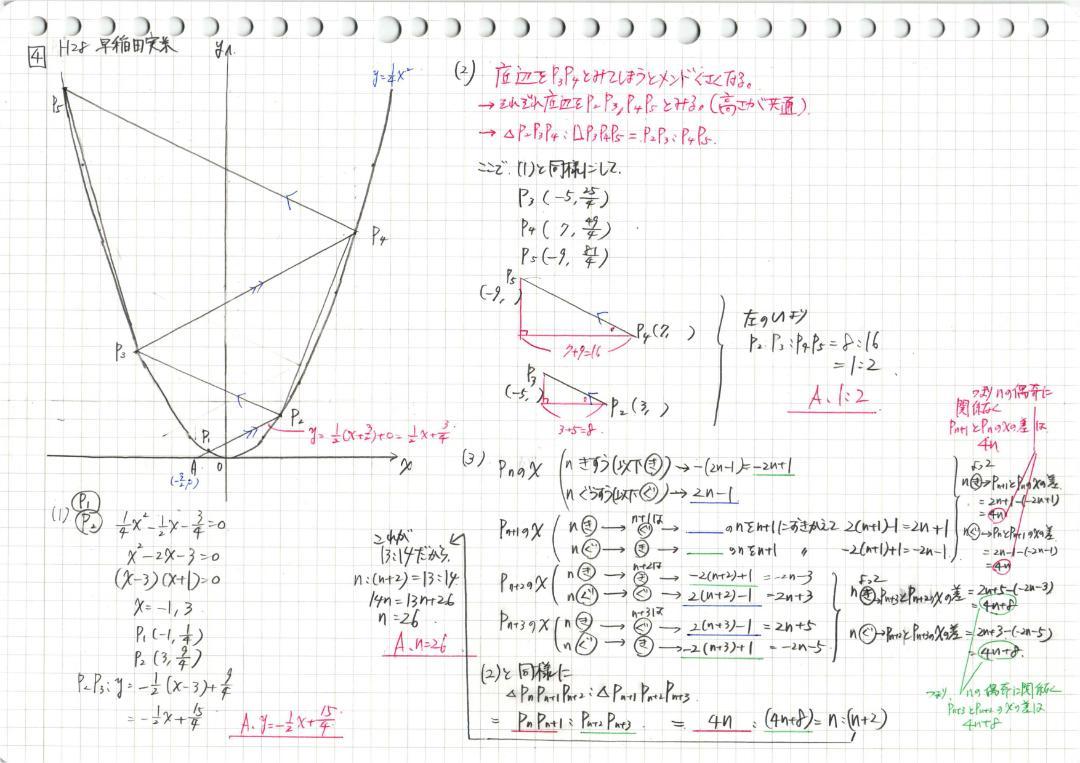 4 H28 早稲田実業
y
y=¼x²
P5
P4
P3
P2
P1
A
(-3/2,0)
0
x
y=½(x+3/2)+0=½x+¾
(1) P1
P2
¼x²-½x-¾=0
x²-2x-3=0
(x-3)(x+1)=0
x=-1,3
P1(-1,¼)
P2(3,9/4)
P2P3:y=-½(x-3)+9/4
=-½x+15/4
A. y=-½x+15/4
(2) 底辺をP3P4とみてしまうとメンドくさくなる。
→それぞれ底辺をP2P3,P4P5とみる。(高さが共通)
→△P2P3P4:△P3P4P5=P2P3:P4P5.
ここで、(1)と同様にして、
P3(-5,25/4)
P4(7,49/4)
P5(-9,81/4)
P5
(-9, )
P4(7, )
7+9=16
P3
(-5, )
P2(3, )
3+5=8
左の図より
P2P3:P4P5=8:16
=1:2
A. 1:2
(3) Pnのx
nきすう(以下き)→-(2n-1)=-2n+1
nぐうすう(以下ぐ)→2n-1
Pn+1のx
nき→n+1はぐ→ のnをn+1におきかえて 2(n+1)-1=2n+1
nぐ→き→ のnをn+1 〃 -2(n+1)+1=-2n-1
Pn+2のx
nき→n+2はき→-2(n+2)+1=-2n-3
nぐ→ぐ→2(n+2)-1=2n+3
Pn+3のx
nき→n+3はぐ→2(n+3)-1=2n+5
nぐ→き→-2(n+3)+1=-2n-5
よって
nき→Pn+1とPnのxの差
=2n+1-(-2n+1)
=4n
nぐ→PnとPn+1のxの差
=2n-1-(-2n-1)
=4n
つまりnの偶奇に
関係なく
Pn+1とPnのxの差は
4n
よって
nき→Pn+3とPn+2のxの差=2n+5-(-2n-3)
=4n+8
nぐ→Pn+2とPn+3のxの差=2n+3-(-2n-5)
=4n+8.
つまり、nの偶奇に関係なく
Pn+3とPn+2のxの差は
4n+8
(2)と同様に
△PnPn+1Pn+2:△Pn+1Pn+2Pn+3
=PnPn+1:Pn+2Pn+3 = 4n:(4n+8)=n:(n+2)
これが
13:14だから
n:(n+2)=13:14
14n=13n+26
n=26
A. n=26